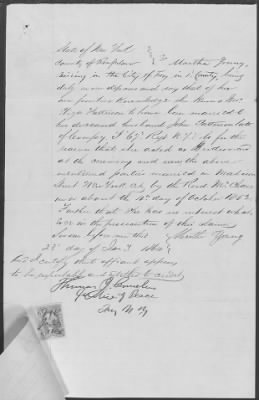 State of New York
County of Rensselaer } SS Martha Young
residing in the City of Troy in s. County, being
duly sworn deposes and says that of her
own personal Knowledge she knows Mrs
Eliza Patterson to have been married to
her deceased husband John Patterson late
of Company I 63d Regt N.Y. Vols for the
reason that she acted as Bridesmaid
at the ceremony and saw the above
mentioned parties married in Madison
Street New York City by the Revd Mr
on or about the day of October 1852
Further that she has no interest what
ever in the prosecution of this claim
Sworn before me this } Martha Young
28th day of Jan
and I certify that affiant appears
to be respectable and entitled to credit
Thomas J.
Justice of Peace
Troy N Y